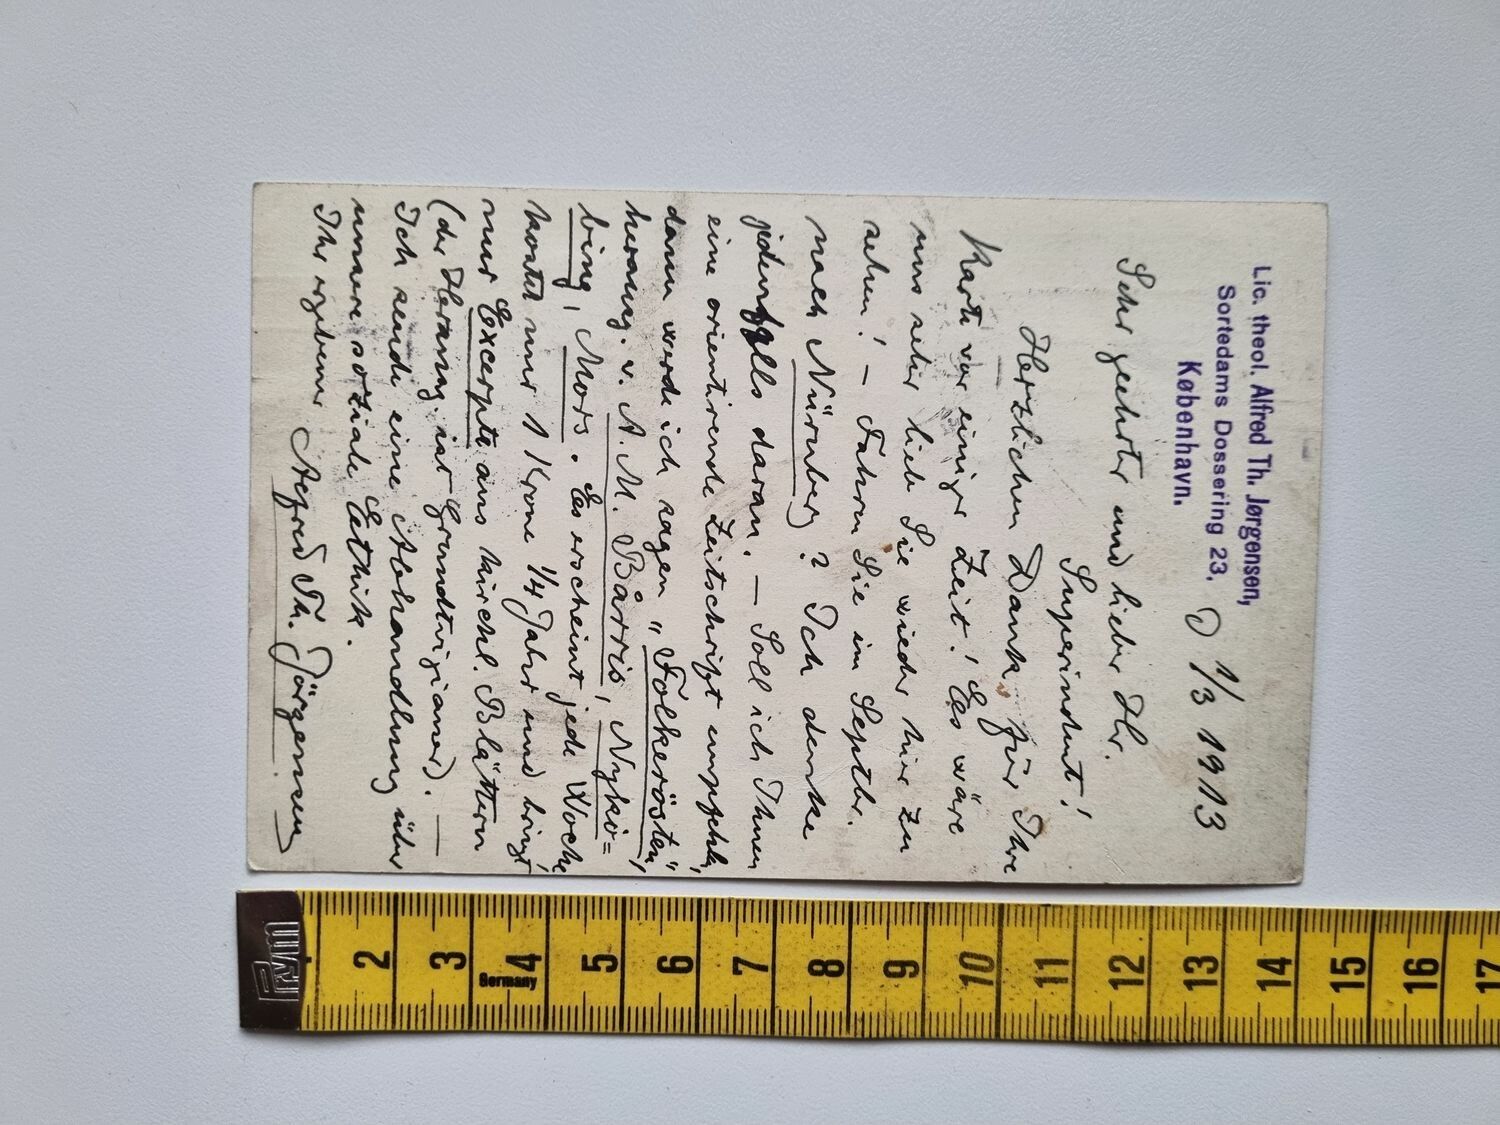 Lic. theol. Alfred Th. Jørgensen,
Sortedams Dossering 23.
København.
D 1/3 1913
Sehr geehrter und lieber Hr.
Superindent!
Herzlichen Dank für Ihre
Karte vor einiger Zeit! Es wäre
uns sehr lieb Sie wieder hier zu
sehen! – Fahren Sie im Septbr.
nach Nürnberg? Ich denke
jedenfalls daran. – Soll ich Ihnen
eine orientirende Zeitschrift empfehlen,
dann werde ich sagen „Folkerösten“,
herausg. v. A. M. Bårris, Nykö=
bing, Mors. Es erscheint jede Woche
kostet nur 1 Krone 1/4 Jahr und bringt
nur Excerpte aus kirchl. Blättern
(der Herausg. ist Grundtvigianer). –
Ich sende eine Abhandlung über
unsere soziale Eethik.
Ihr ergebener Alfred Th. Jörgensen
Prym
2 3 4 5 6 7 8 9 10 11 12 13 14 15 16 17
Germany